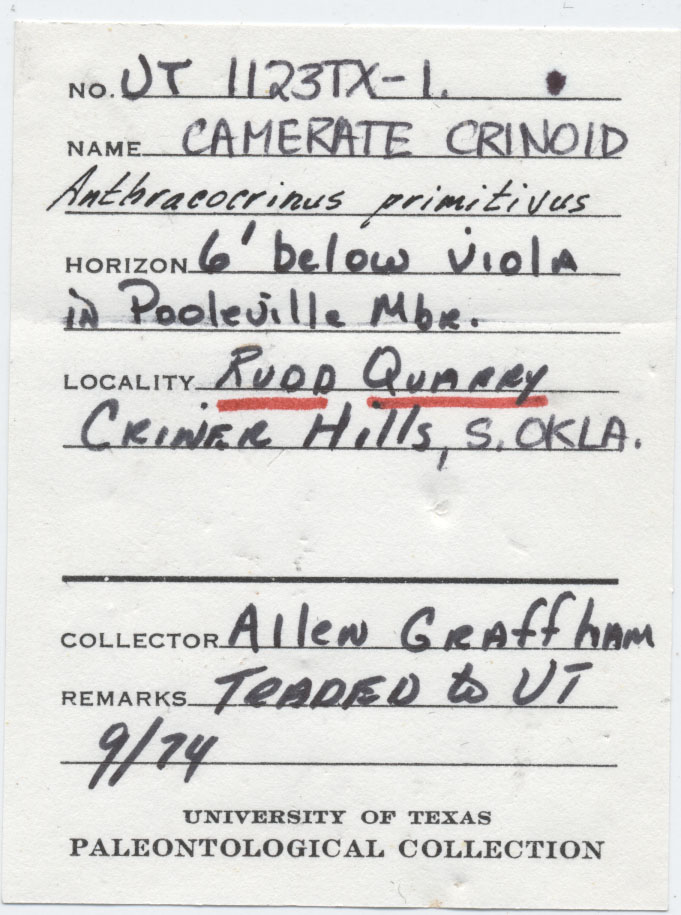 NO. UT 1123TX-1.
NAME CAMERATE CRINOID
Anthracocrinus primitivus
HORIZON 6' below Viola
in Pooleville Mbr.
LOCALITY RUDD QUARRY
CRINER Hills, S. OKLA.
COLLECTOR Allen Graffham
REMARKS TRADED to UT
9/74
UNIVERSITY OF TEXAS
PALEONTOLOGICAL COLLECTION